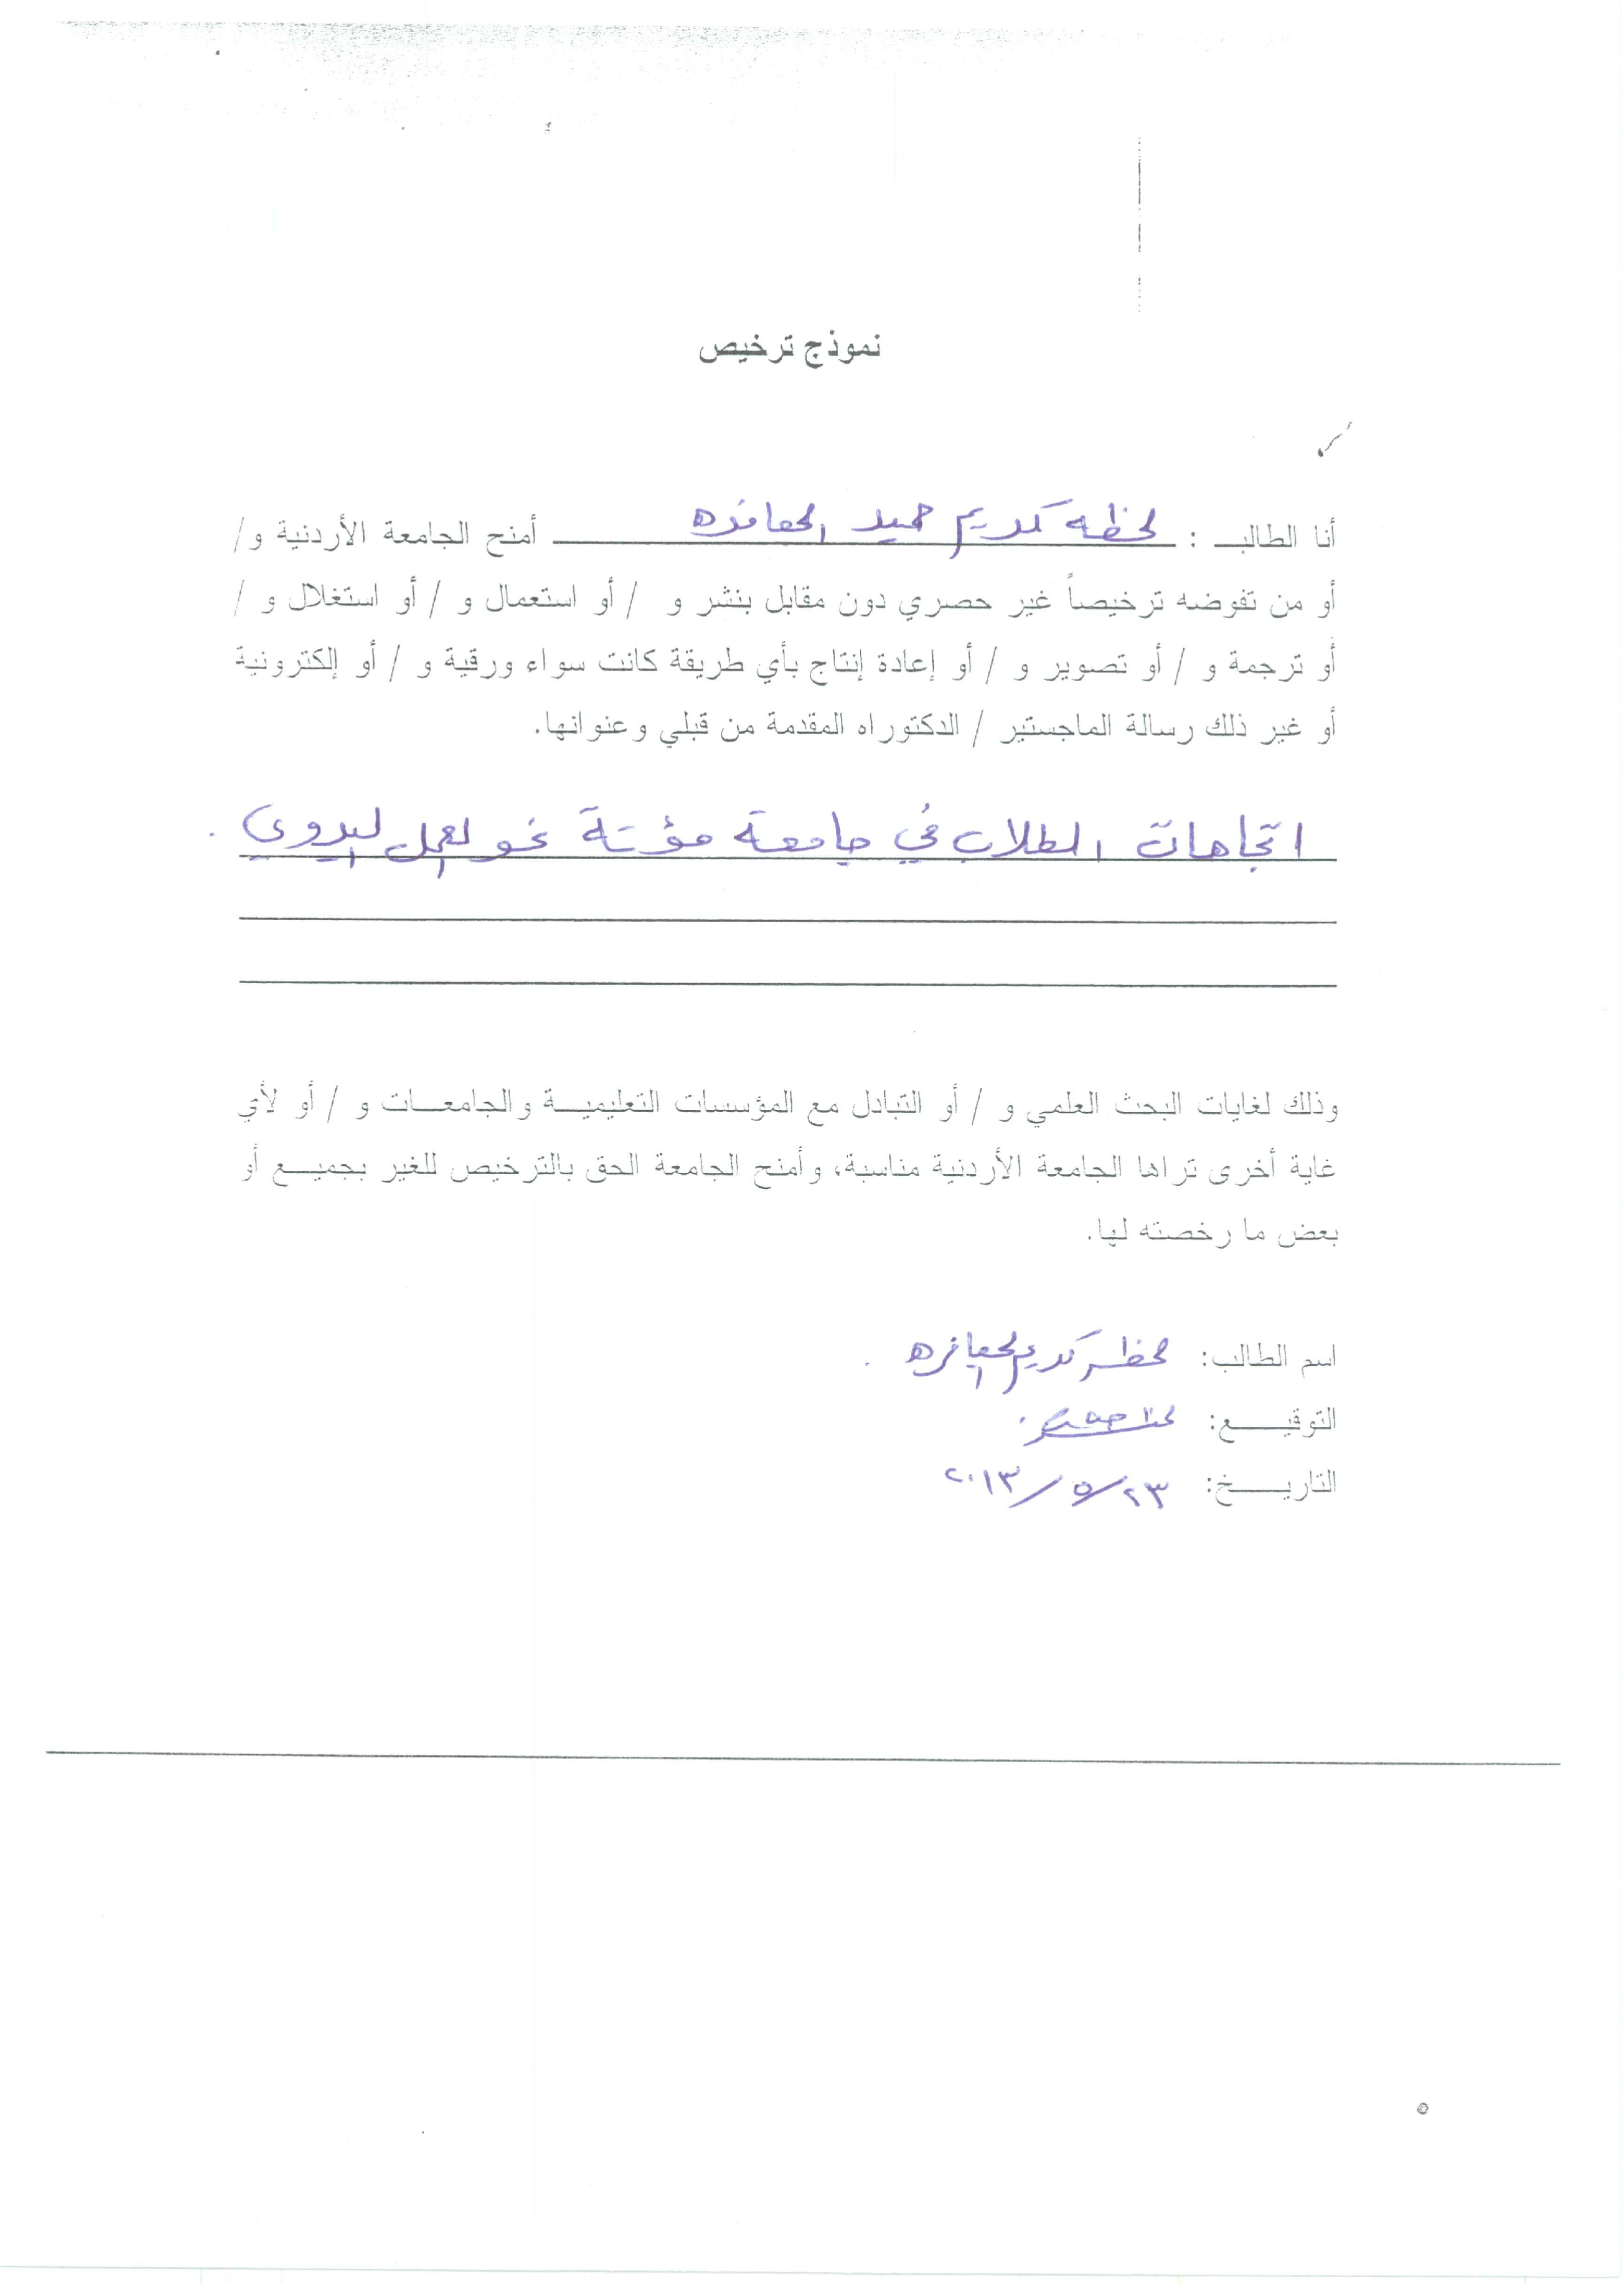 نموذج ترخيص
أنا الطالب : لحظه كريم حميد الجعافره أمنح الجامعة الأردنية و/
أو من تفوضه ترخيصاً غير حصري دون مقابل بنشر و / أو استعمال و / أو استغلال و /
أو ترجمة و / أو تصوير و / أو إعادة إنتاج بأي طريقة كانت سواء ورقية و / أو إلكترونية
أو غير ذلك رسالة الماجستير / الدكتوراه المقدمة من قبلي وعنوانها.
اتجاهات الطلاب في جامعة مؤتة نحو العمل اليدوي .
وذلك لغايات البحث العلمي و / أو التبادل مع المؤسسات التعليمية والجامعات و / أو لأي
غاية أخرى تراها الجامعة الأردنية مناسبة، وأمنح الجامعة الحق بالترخيص للغير بجميع أو
بعض ما رخصته لها.
اسم الطالب: لحظه كريم الجعافره .
التوقيع:
التاريخ: ٢٣/٥/٢٠١٣